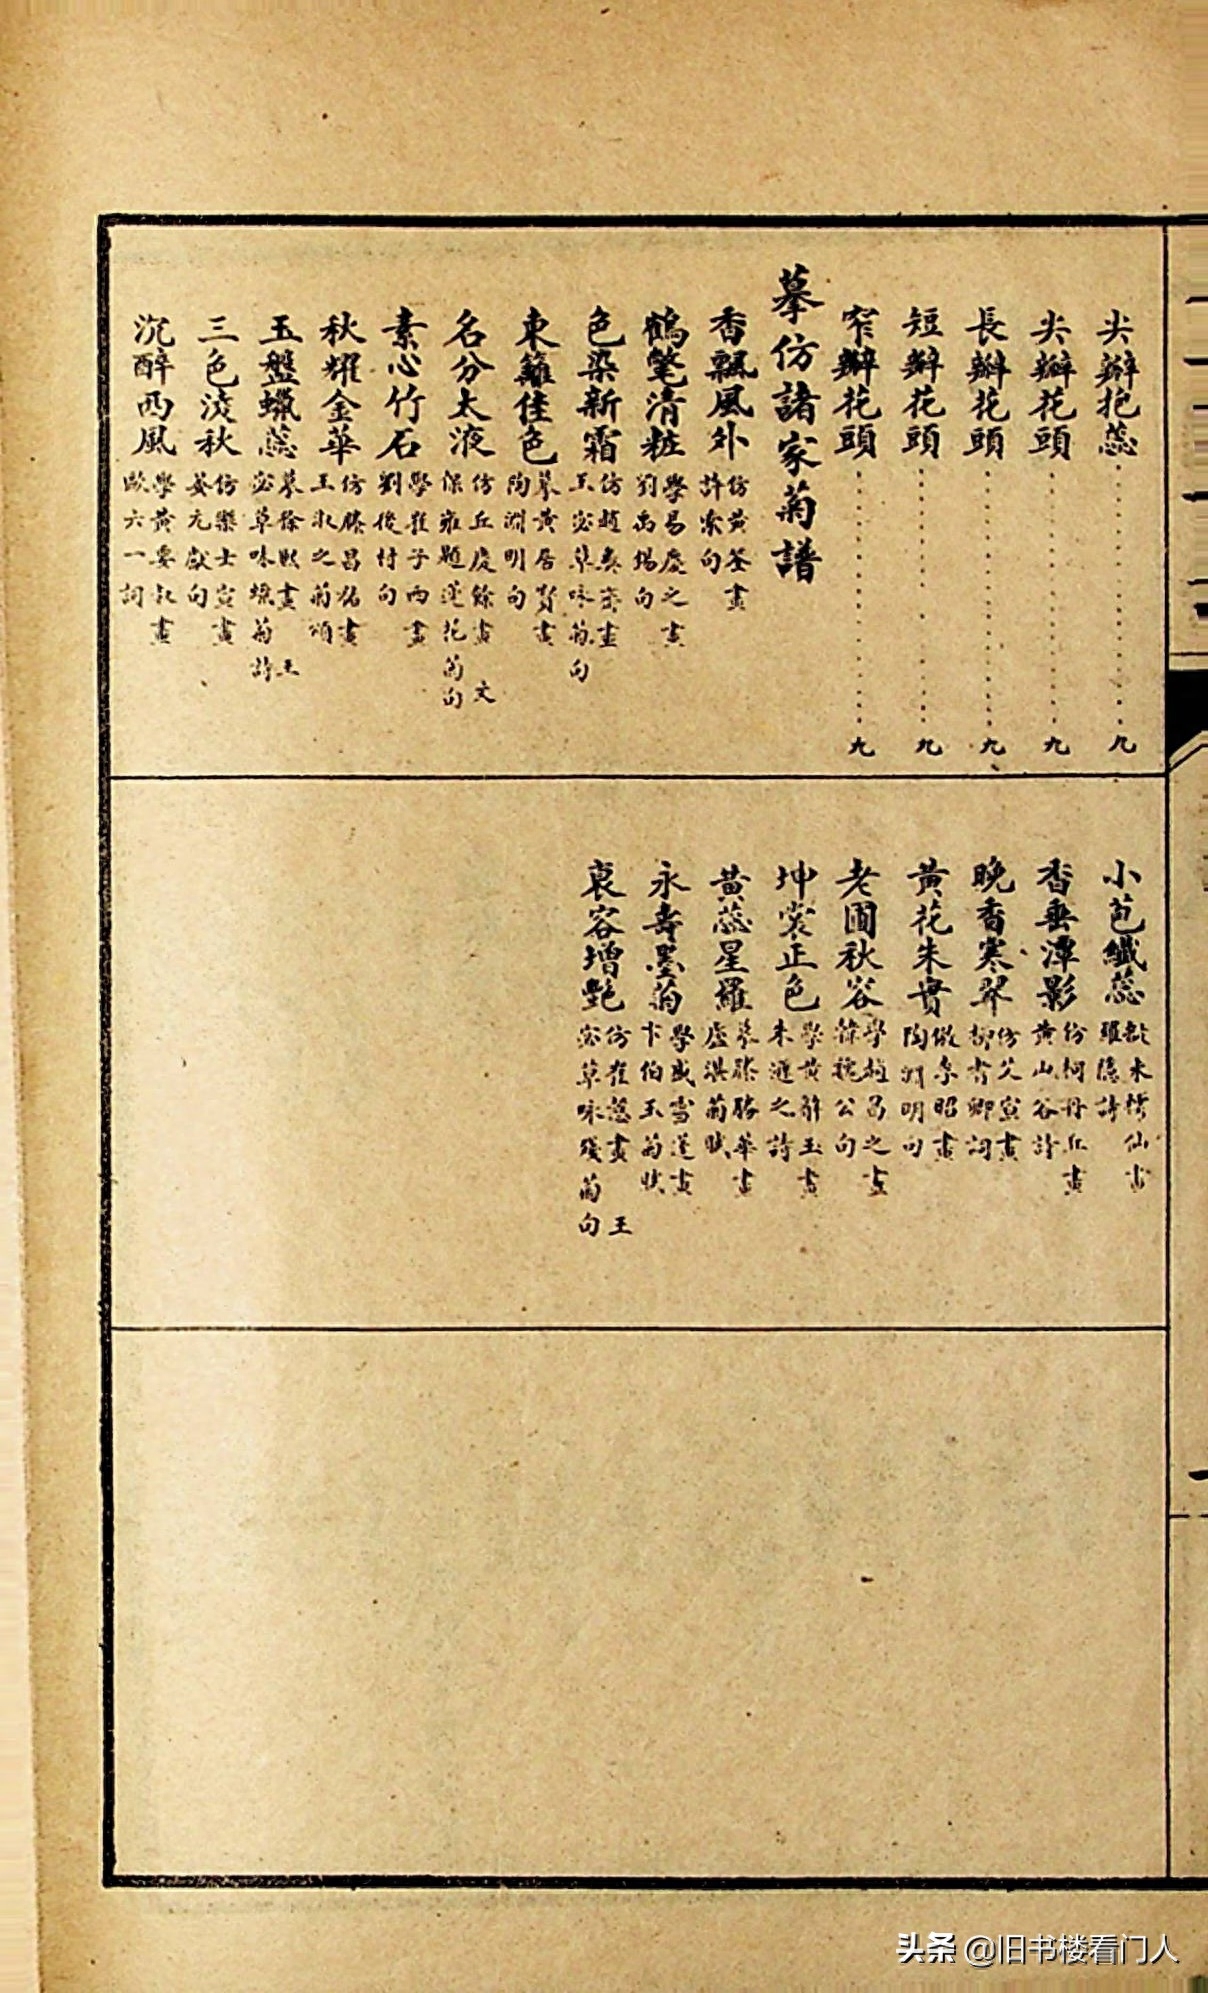 尖瓣抱蕊 九
尖瓣花頭 九
長瓣花頭 九
短瓣花頭 九
窄瓣花頭 九
摹仿諸家菊譜
香飄風外 仿黃筌畫 許棠句
鶴氅清粧 學易慶之畫 劉禹錫句
色染新霜 仿趙彝齋畫 王宓草咏菊句
東籬佳色 摹黃居寶畫 陶淵明句
名分太液 仿丘慶餘畫 文保雍題蓮花菊句
素心竹石 學崔子西畫 劉後村句
秋耀金華 仿滕昌祐畫 王淑之菊頌
玉盤蠟蕊 摹徐熙畫 王宓草咏蠟菊詩
三色淡秋 仿樂士宣畫 晏元獻句
沉醉西風 學黃要叔畫 歐六一詞
小苞纖蕊 羅隱詩
香垂潭影 仿柯丹丘畫 黃山谷詩
晚香寒翠 仿艾宣畫 柳耆卿詞
黃花朱實 陶淵明句
老圃秋容 學趙昌之畫 韓魏公句
坤裳正色 朱遜之詩
黃蕊星羅 摹滕勝華畫 盧淇菊賦
永壽墨菊 學盛雪蓬畫 卞伯玉菊賦
衷容增艷 仿崔慤畫 王宓草咏殘菊句
头条 @旧书楼看门人